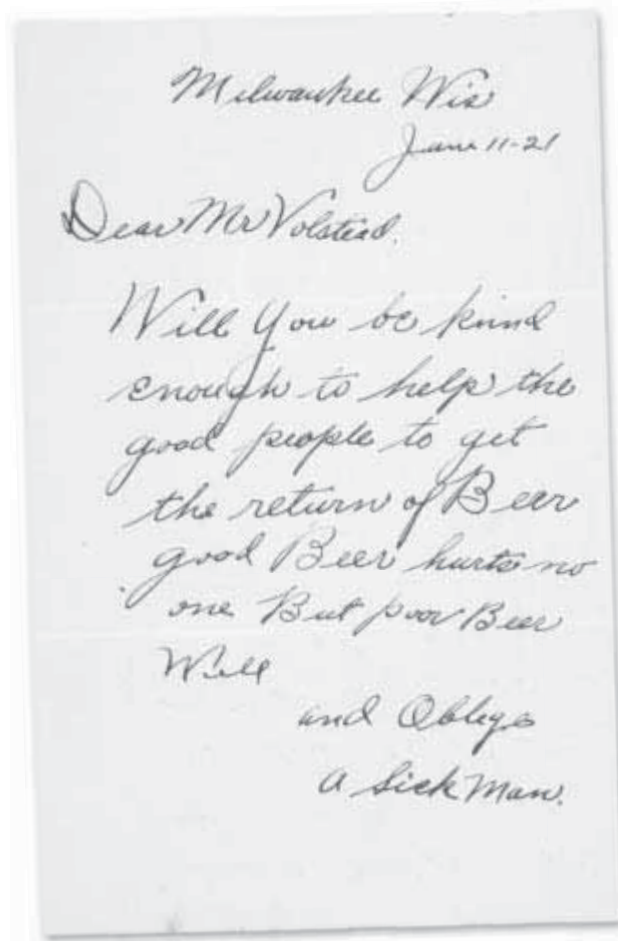 Milwaukee Wis
June 11-21
Dear Mr Volstead.
Will You be kind
enough to help the
good people to get
the return of Beer
good Beer hurts no
one But poor Beer
Will
and Oblige
a Sick Man.